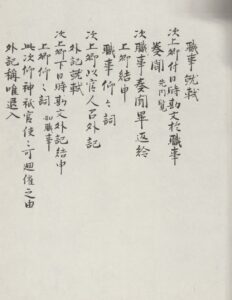 職事就軾
次上卿付日時勘文於職事
奏聞 先内覧
次職事奏聞畢返給
上卿結申
職事仰々詞
次上卿以官人召外記
外記就軾
次上卿下日時勘文外記結申
上卿仰々詞 如職事
此次仰神祇官使々可廻催之由
外記称唯退入